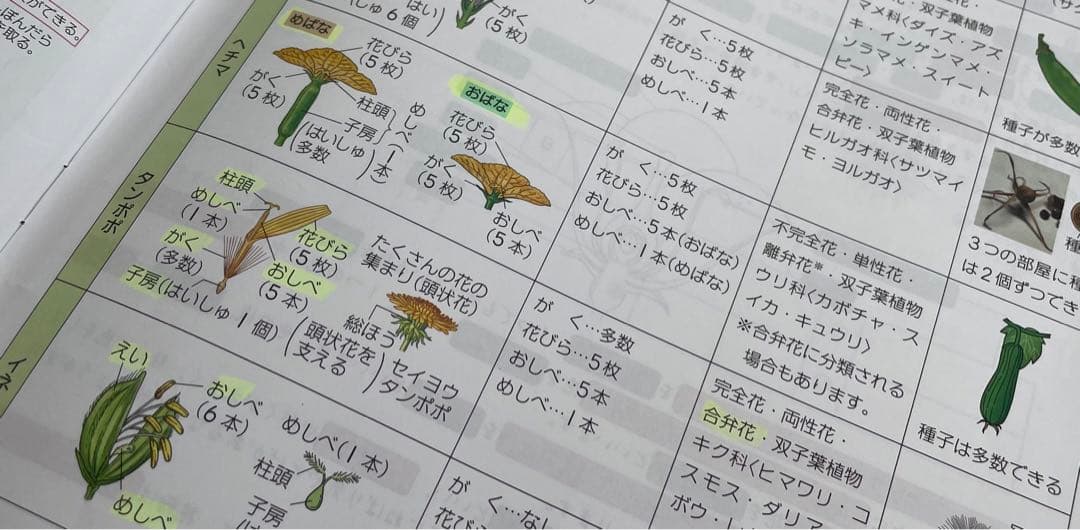 ができる。
ぼんだら
を取る。
はい
しゅ6個
がく
(5枚)
が
く…5枚
花びら…5枚
おしべ…5本
めしべ…1本
完全花・両性花・
双子葉植物
マメ科〈ダイズ・アズ
キ・インゲンマメ・
ソラマメ・スイート
ピー〉
種子が多数
ヘチマ
めばな
花びら
(5枚)
がく
(5枚)
柱頭
子房
はいしゅ
多数
めしべ(1本)
おばな
花びら
(5枚)
がく
(5枚)
おしべ
(5本)
が く…5枚
花びら…5枚
おしべ…5本(おばな)
めしべ…1本(めばな)
合弁花・双子葉植物
ヒルガオ科〈サツマイ
モ・ヨルガオ〉
3つの部屋に種
は2個ずつでき
タンポポ
柱頭
めしべ
(1本)
がく
(多数)
子房(はいしゅ1個)
花びら
(5枚)
おしべ
(5本)
たくさんの花の
集まり(頭状花)
総ほう
頭状花を
支える
セイヨウ
タンポポ
が く…多数
花びら…5枚
おしべ…5本
めしべ…1本
不完全花・単性花・
離弁花※・双子葉植物
ウリ科〈カボチャ・ス
イカ・キュウリ〉
※合弁花に分類される
場合もあります。
種子は多数できる
イネ
えい
おしべ
(6本)
めしべ
めしべ(1本)
柱頭
子房
が く…な
花びら
完全花・両性花・
合弁花・双子葉植物
キク科〈ヒマワリ・コ
スモス・ダリア
ボウ・